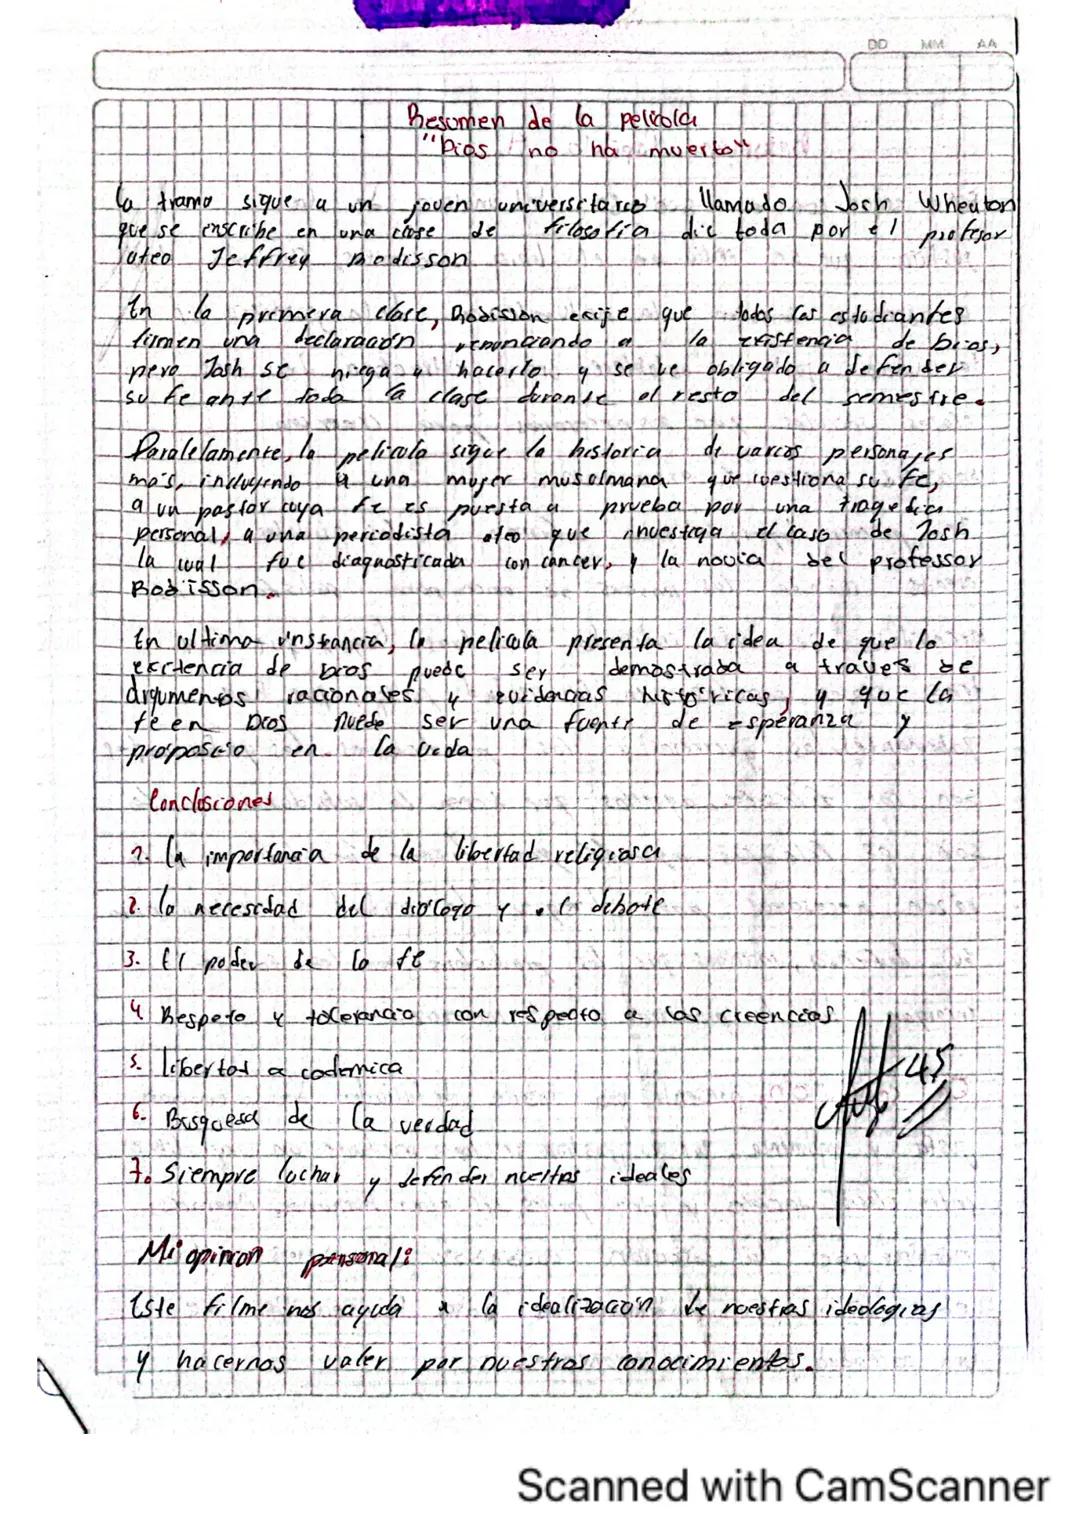 DD MM AA
Resumen de la pelicola
"Dios no ha muerto"
la trama sigue a un joven universitario llamado Josh Wheaton
que se inscribe en una clase de filosofia dic toda por el profesor
ateo Jeffrey Radisson
En la primera clase, Radisson exije que todos los estudiantes
firmen una declaración renunciando a la existencia de Dios,
pero Josh se niega a hacerlo y se ve obligado a defender
su fe ante toda la clase durante el resto del semestre.
Paralelamente, la pelicula sigue la historia de varios personajes
más, incluyendo a una mujer musulmana que cuestiona su fe,
a un pastor cuya fe es puesta a prueba por una tragedia
personal, a una periodista atea que investiga el caso de Josh
la cual fue diagnosticada con cancer, y la novia del professor
Radisson.
En ultima instancia, la pelicula presenta la idea de que la
existencia de Dios puede ser demostrada a traves de
argumentos racionales y evidencias históricas, y que la
fe en Dios puede ser una fuente de esperanza y
proposito en la vida
Conclosiones
1. La importancia de la libertad religiosa
2. la necesidad del diálogo y el debate
3. El poder de la fe
4 Respeto y tolerancia con respecto a las creencias
5. libertad a cademica
6. Busqueda de la verdad
7. Siempre luchar y defender nuestros ideales
45
Mi opinion personal:
Este filme nos ayuda a la idealización de nuestras ideologias
y hacernos valer por nuestros conocimientos.
Scanned with CamScanner